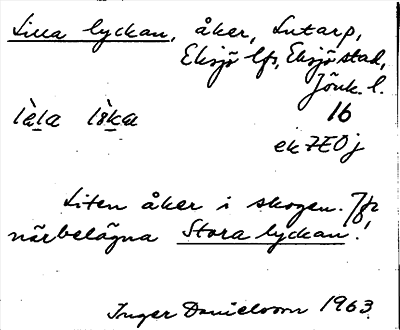 Lilla lyckan, åker, Lutarp,
Eksjö lfs, Eksjö stad,
Jönk. l.
16
ek 7E0j
Liten åker i skogen. Jfr
närbelägna Stora lyckan!
Inger Danielsson 1963.